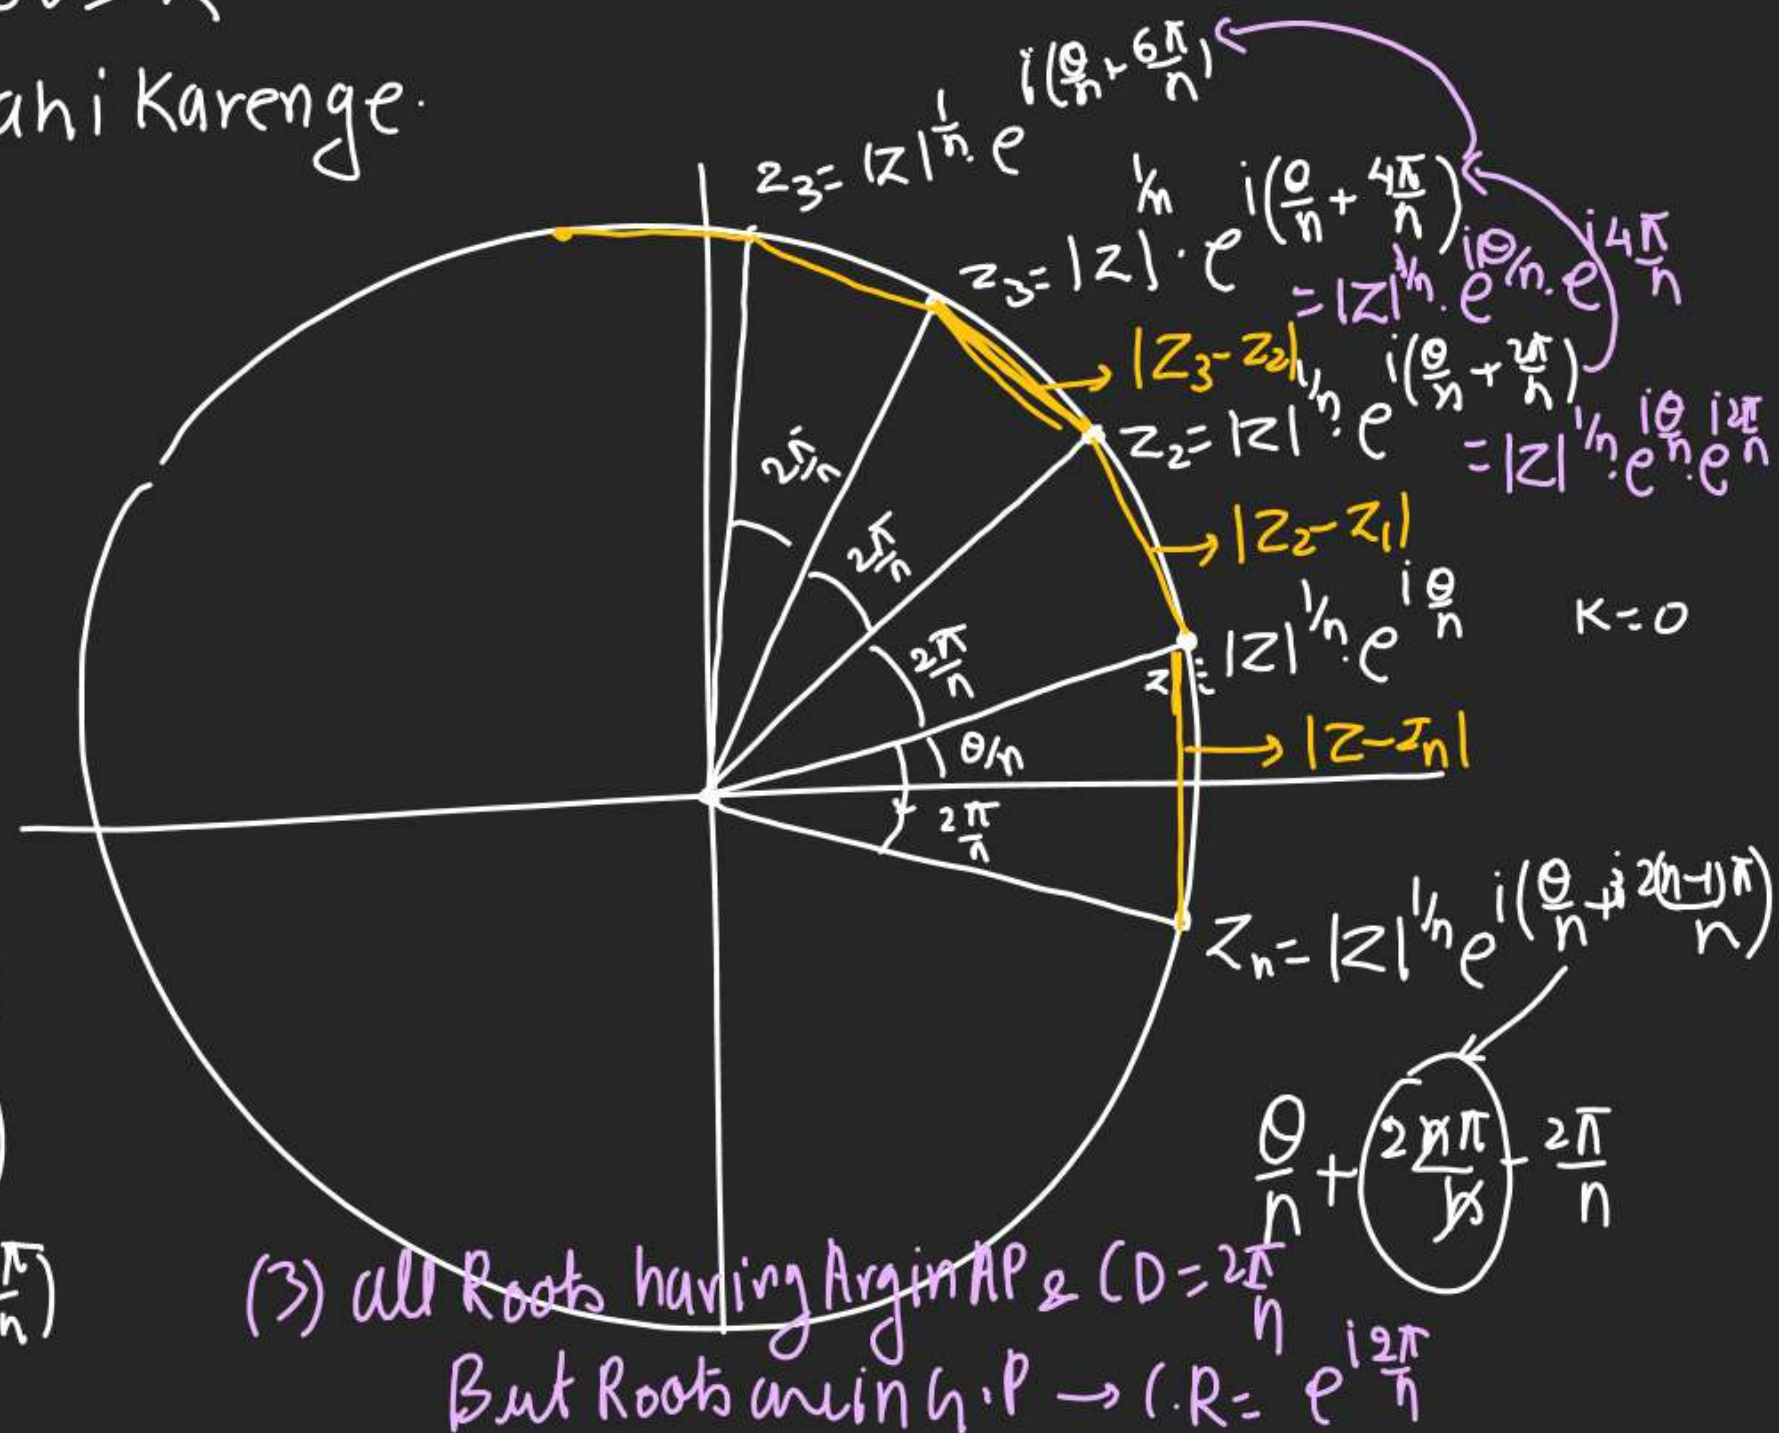 ahi Karenge.
z₃ = |z|^(1/n) · e^(i(θ/n + 6π/n))
z₃ = |z|^(1/n) · e^(i(θ/n + 4π/n))
= |z|^(1/n) · e^(iθ/n) · e^(i4π/n)
|z₃-z₂|
z₂ = |z|^(1/n) · e^(i(θ/n + 2π/n))
= |z|^(1/n) · e^(iθ/n) · e^(i2π/n)
|z₂-z₁|
2π/n
2π/n
2π/n
z = |z|^(1/n) · e^(iθ/n) K=0
θ/n
|z-zₙ|
2π/n
zₙ = |z|^(1/n) e^(i(θ/n + i 2(n-1)π/n))
θ/n + 2nπ/n - 2π/n
π/n)
(3) all Roots having Arg in AP & CD = 2π/n
But Roots are in G.P → C.R = e^(i2π/n)